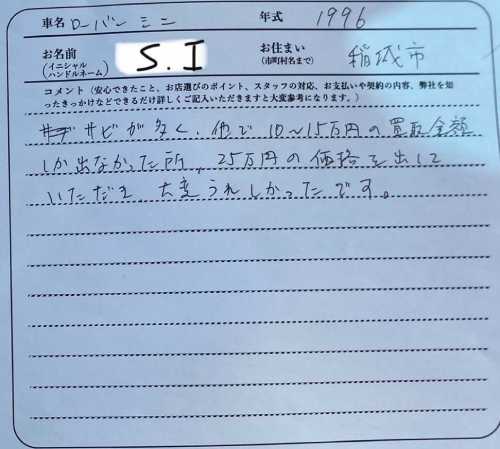 車名 ローバーミニ 年式 1996
お名前 (イニシャル ハンドルネーム) S.I お住まい (市町村名まで) 稲城市
コメント（安心できたこと、お店選びのポイント、スタッフの対応、お支払いや契約の内容、弊社を知
ったきっかけなどできるだけ詳しくご記入いただきますと大変参考になります。）
サビが多く、他で10～15万円の買取金額
しか出なかった所、25万円の価格を出して
いただき大変うれしかったです。